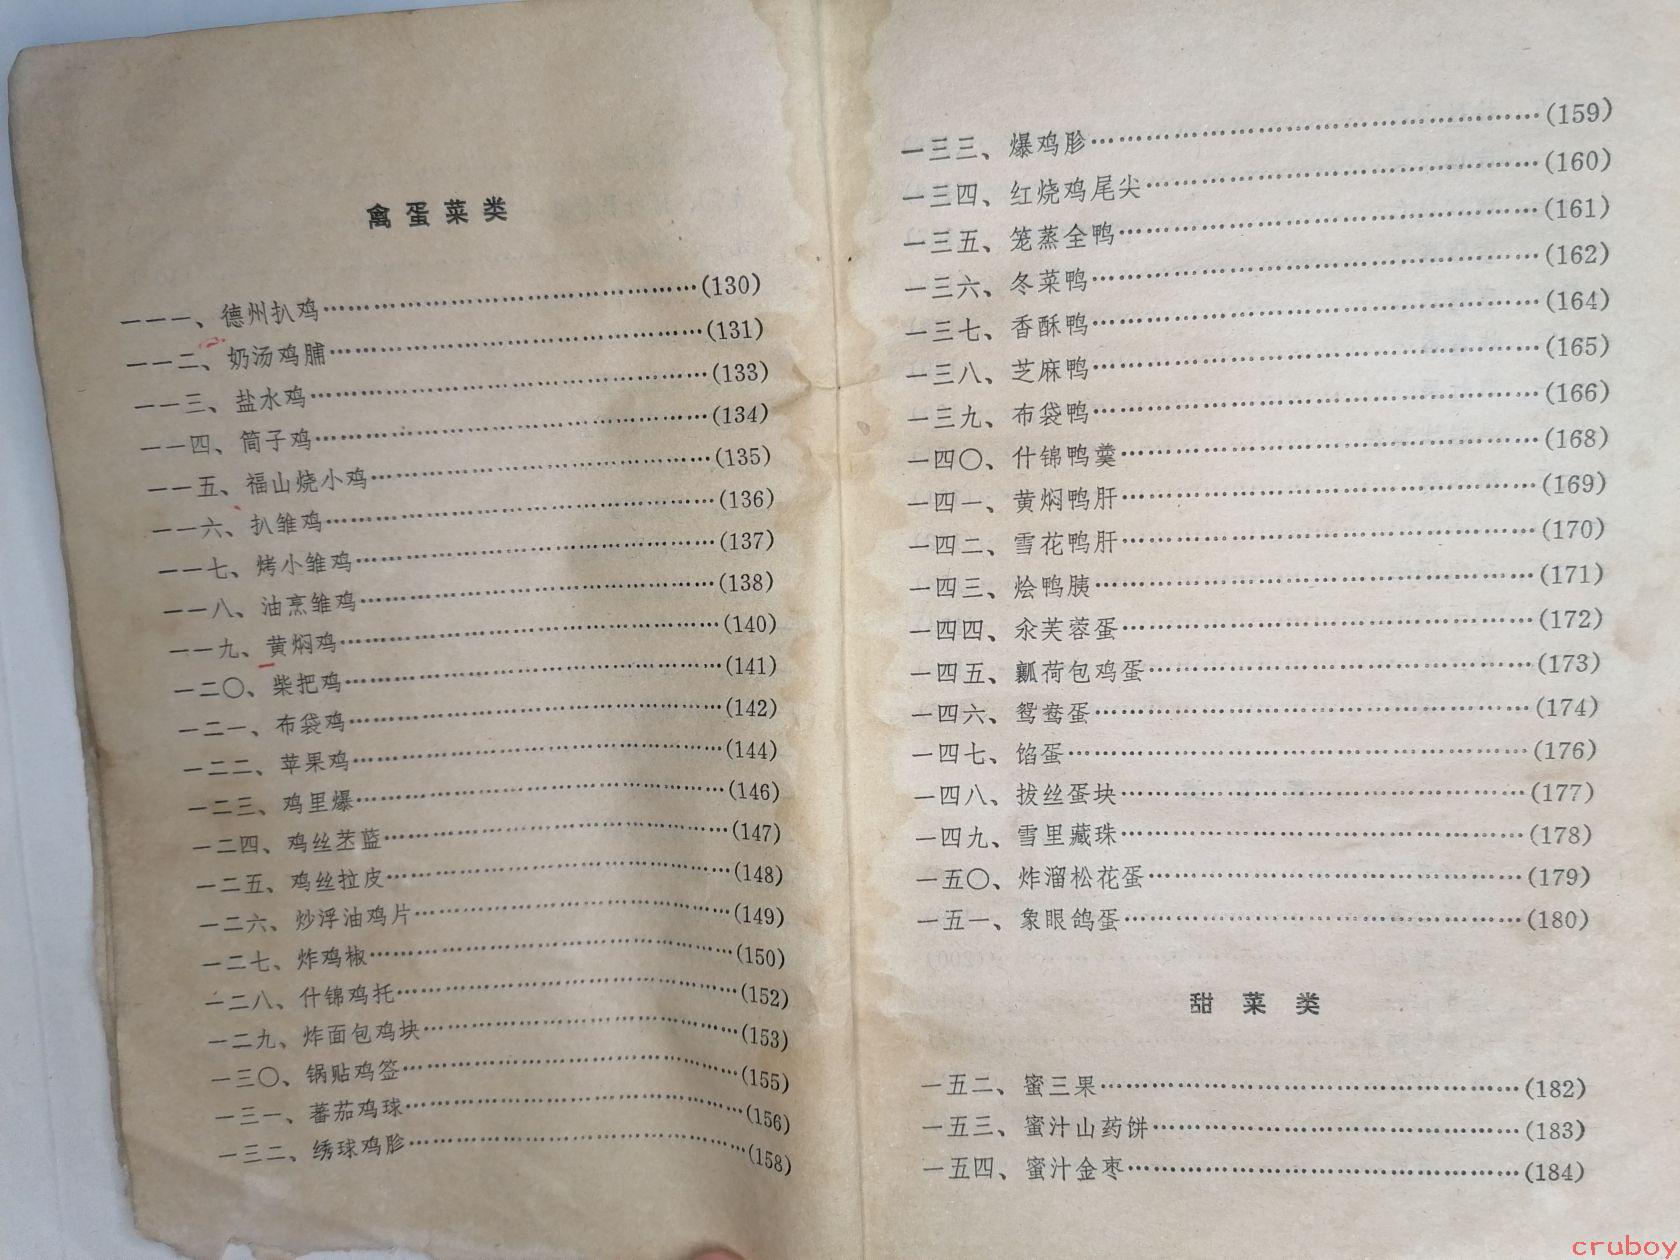 禽蛋菜类
一一一、德州扒鸡……(130)
一一二、奶汤鸡脯……(131)
一一三、盐水鸡……(133)
一一四、筒子鸡……(134)
一一五、福山烧小鸡……(135)
一一六、扒雏鸡……(136)
一一七、烤小雏鸡……(137)
一一八、油烹雏鸡……(138)
一一九、黄焖鸡……(140)
一二〇、柴把鸡……(141)
一二一、布袋鸡……(142)
一二二、苹果鸡……(144)
一二三、鸡里爆……(146)
一二四、鸡丝苤蓝……(147)
一二五、鸡丝拉皮……(148)
一二六、炒浮油鸡片……(149)
一二七、炸鸡椒……(150)
一二八、什锦鸡托……(152)
一二九、炸面包鸡块……(153)
一三〇、锅贴鸡签……(155)
一三一、蕃茄鸡球……(156)
一三二、绣球鸡胗……(158)
一三三、爆鸡胗……(159)
一三四、红烧鸡尾尖……(160)
一三五、笼蒸全鸭……(161)
一三六、冬菜鸭……(162)
一三七、香酥鸭……(164)
一三八、芝麻鸭……(165)
一三九、布袋鸭……(166)
一四〇、什锦鸭羹……(168)
一四一、黄焖鸭肝……(169)
一四二、雪花鸭肝……(170)
一四三、烩鸭胰……(171)
一四四、氽芙蓉蛋……(172)
一四五、瓤荷包鸡蛋……(173)
一四六、鸳鸯蛋……(174)
一四七、馅蛋……(176)
一四八、拔丝蛋块……(177)
一四九、雪里藏珠……(178)
一五〇、炸溜松花蛋……(179)
一五一、象眼鸽蛋……(180)
甜菜类
一五二、蜜三果……(182)
一五三、蜜汁山药饼……(183)
一五四、蜜汁金枣……(184)
cruboy